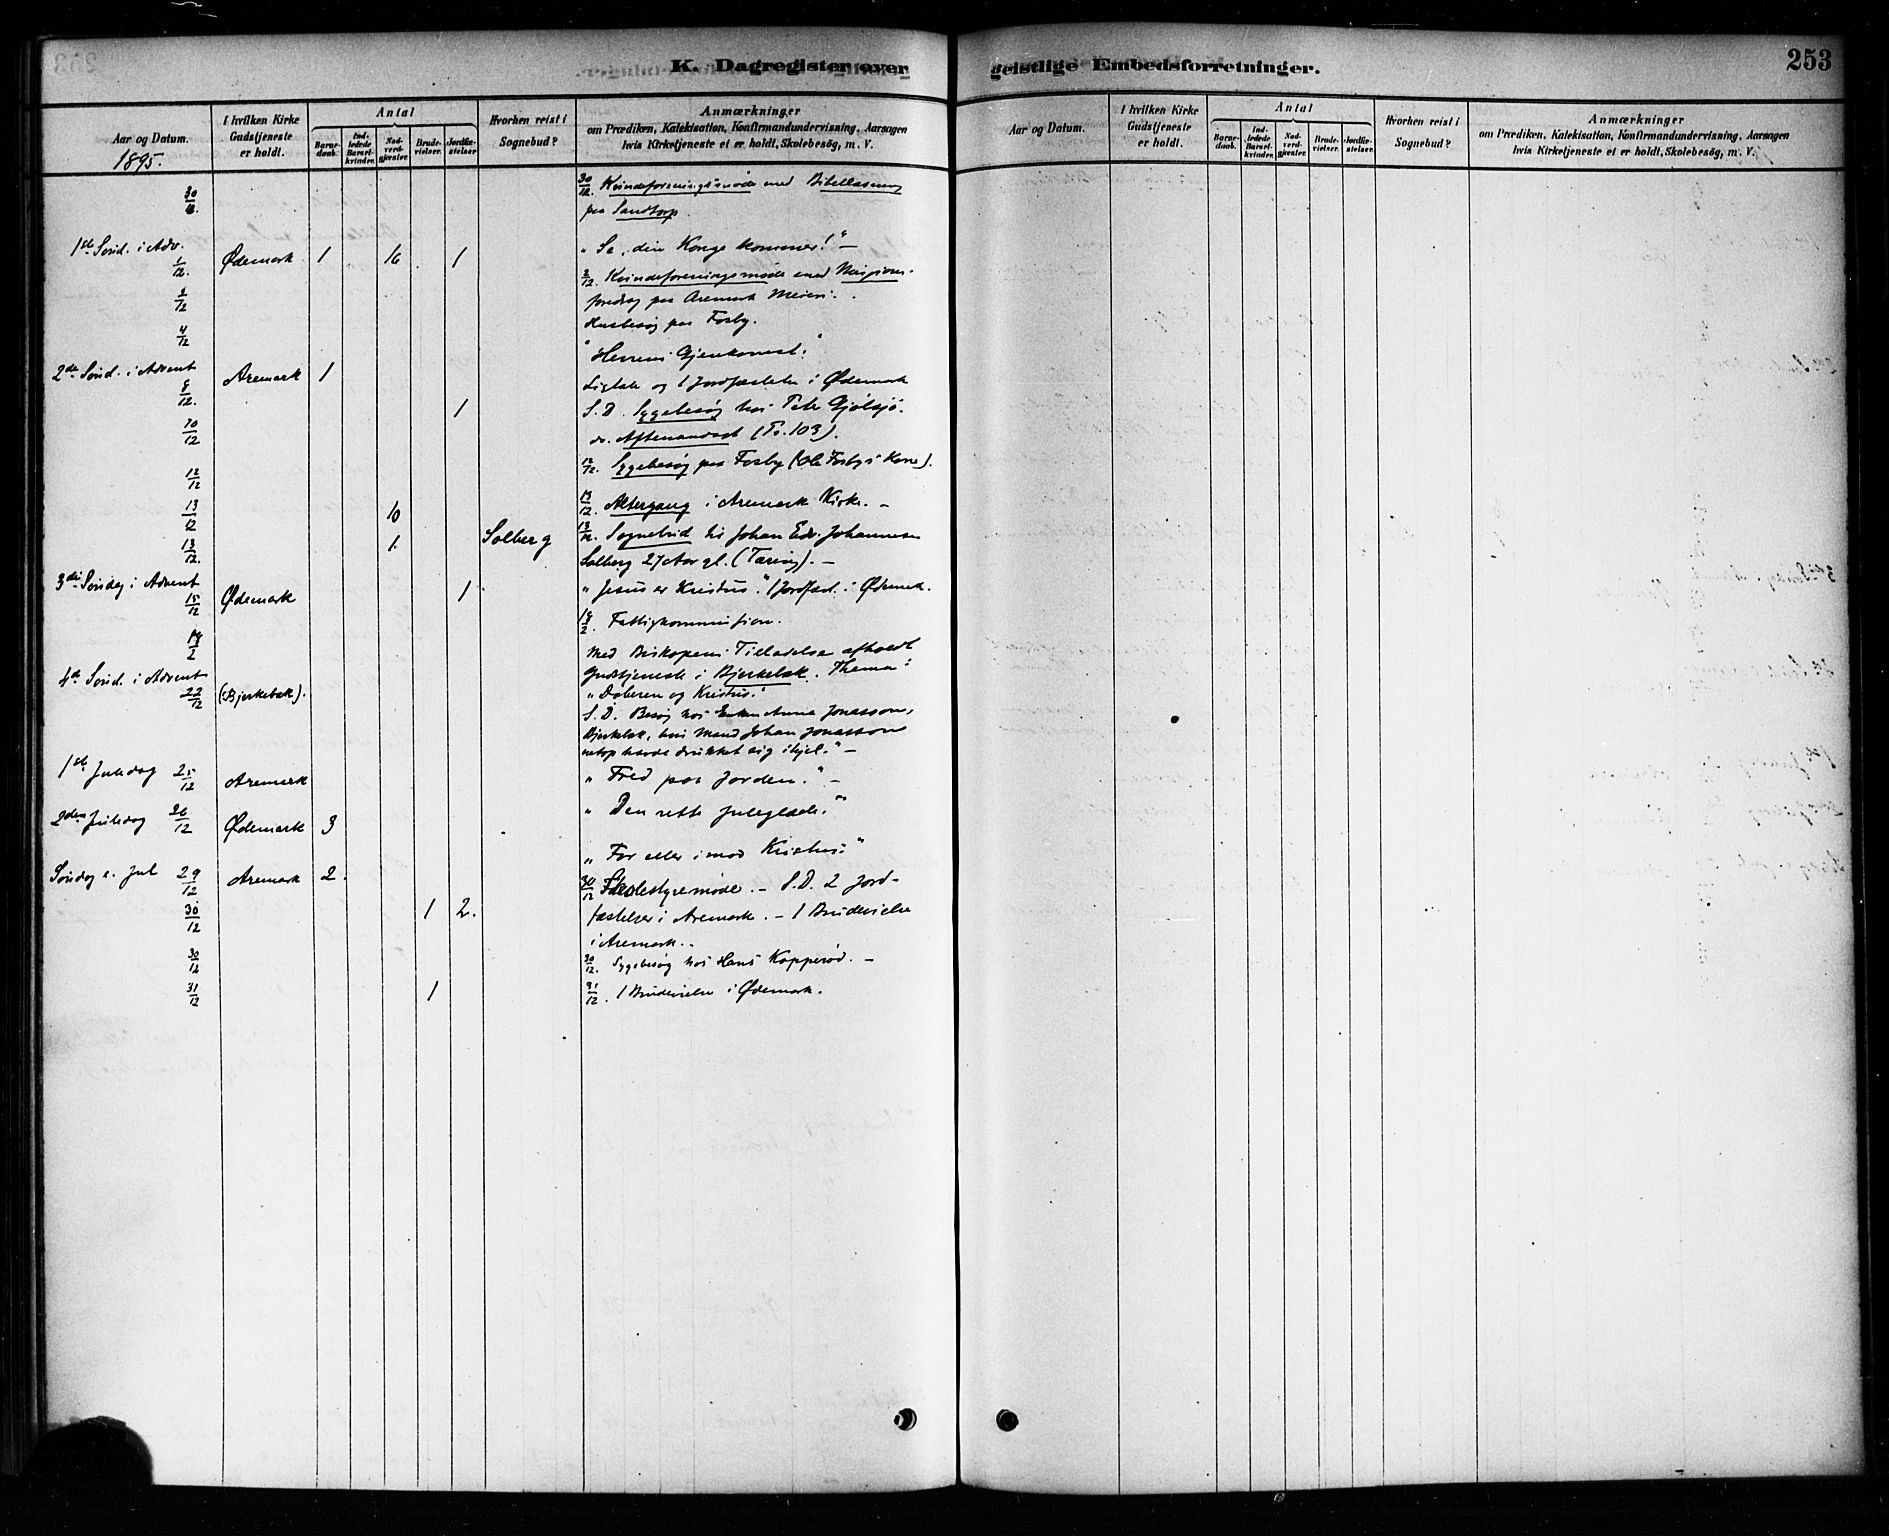 K. Dagregister over geistlige Embedsforretninger.
253
Aar og Datum.
I hvilken Kirke Gudstjeneste er holdt.
Antal
Barne-daab.
Ind-ledede Barsel-kvinder.
Nad-verd-gjester.
Brude-vielser.
Jordfæ-stelser
Hvorhen reist i Sognebud?
Anmærkninger
om Prædiken, Katekisation, Konfirmandundervisning, Aarsagen
hvis Kirketjeneste ei er holdt, Skolebesøg, m. V.
1895.
30/12. Kvindeforeningsmøde med Bibellæsning
paa Sandtorp.
1ste Sønd. i Adv. 1/12. Ødemark 1 16 1 "Se, din Konge kommer!" —
2/12 2/12. Kvindeforeningsmøde med Missions-
foredrag paa Aremark Meieri.
4/12 Husbesøg paa Fosby.
2den Sønd. i Advent 8/12. Aremark 1 "Herrens Gjenkomst."
Ligtale og 1 Jordfæstelse i Ødemark
1 S.D. Sygebesøg hos Petr Gjølsjø.
10/12 Aftenandagt (Ps. 103).
12/12 12/12. Sygebesøg paa Fosby (Ole Fosbys Kone).
13/12 10 13/12. Altergang i Aremark Kirke. —
13/12. 1. Solberg 13/12. Sognebud til Johan Edv. Johannesen
Solberg 27 Aar gl. (Tæring). —
3die Søndag i Advent 15/12 Ødemark 1 "Jesus er Kristus." 1 Jordfæst. i Ødemark.
Fattigkommission.
Med Biskopens Tilladelse afholdt
4de Sønd. i Advent 22/12 (Bjerkebæk). Gudstjeneste i Bjerkebæk. Thema:
"Døberen og Kristus."
S.D. Besøg hos Enken Anna Jonasson,
Bjerkebæk, hvis Mand Johan Jonasson
netop havde drukket sig ihjel." —
1ste Juledag 25/12 Aremark "Fred paa Jorden." —
2den Juledag 26/12 Ødemark 3 "Den rette Juleglæde."
"For eller imod Kristus."
Søndag e. Jul 29/12 Aremark 2. 30/12 Skolestyremøde. — S.D. 2 Jord-
30/12 1 2. fæstelser i Aremark. — 1 Brudevielse
i Aremark.
30/12 30/12. Sygebesøg hos Hans Kopperød. —
31/12 1 31/12. 1 Brudevielse i Ødemark.
Aar og Datum.
I hvilken Kirke Gudstjeneste er holdt.
Antal
Barne-daab.
Ind-ledede Barsel-kvinder.
Nad-verd-gjester.
Brude-vielser.
Jordfæ-stelser
Hvorhen reist i Sognebud?
Anmærkninger
om Prædiken, Katekisation, Konfirmandundervisning, Aarsagen
hvis Kirketjeneste ei er holdt, Skolebesøg, m. V.